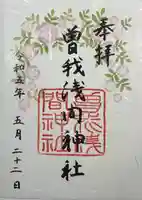 奉拝
曽我浅间神社
令和五年 五月二十二日